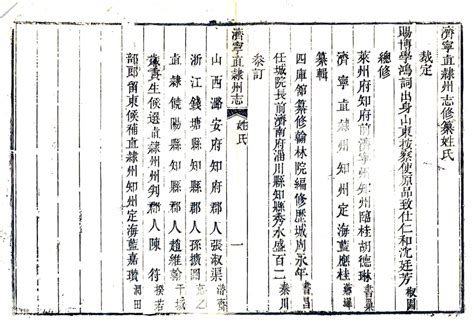 濟寧直隸州志修纂姓氏
裁定
賜博學鴻詞出身山東按察使原品致仕仁和沈廷芳椒園
總修
萊州府知府前濟寧州知州臨桂胡德琳書巢
濟寧直隸州知州定海藍應桂
纂輯
四庫館纂修翰林院編修歷城周永年書昌
任城院長前濟南府淄川縣知縣秀水盛百二秦川
叅訂
濟寧直隸州志 姓氏 一
山西潞安府知府郡人張淑渠
浙江錢塘縣知縣郡人孫擴圖
直隸饒陽縣知縣郡人趙維翰
歲貢生候選直隸州州判郡人陳符
部郎留東候補直隸州知州定海藍嘉瓚潤田